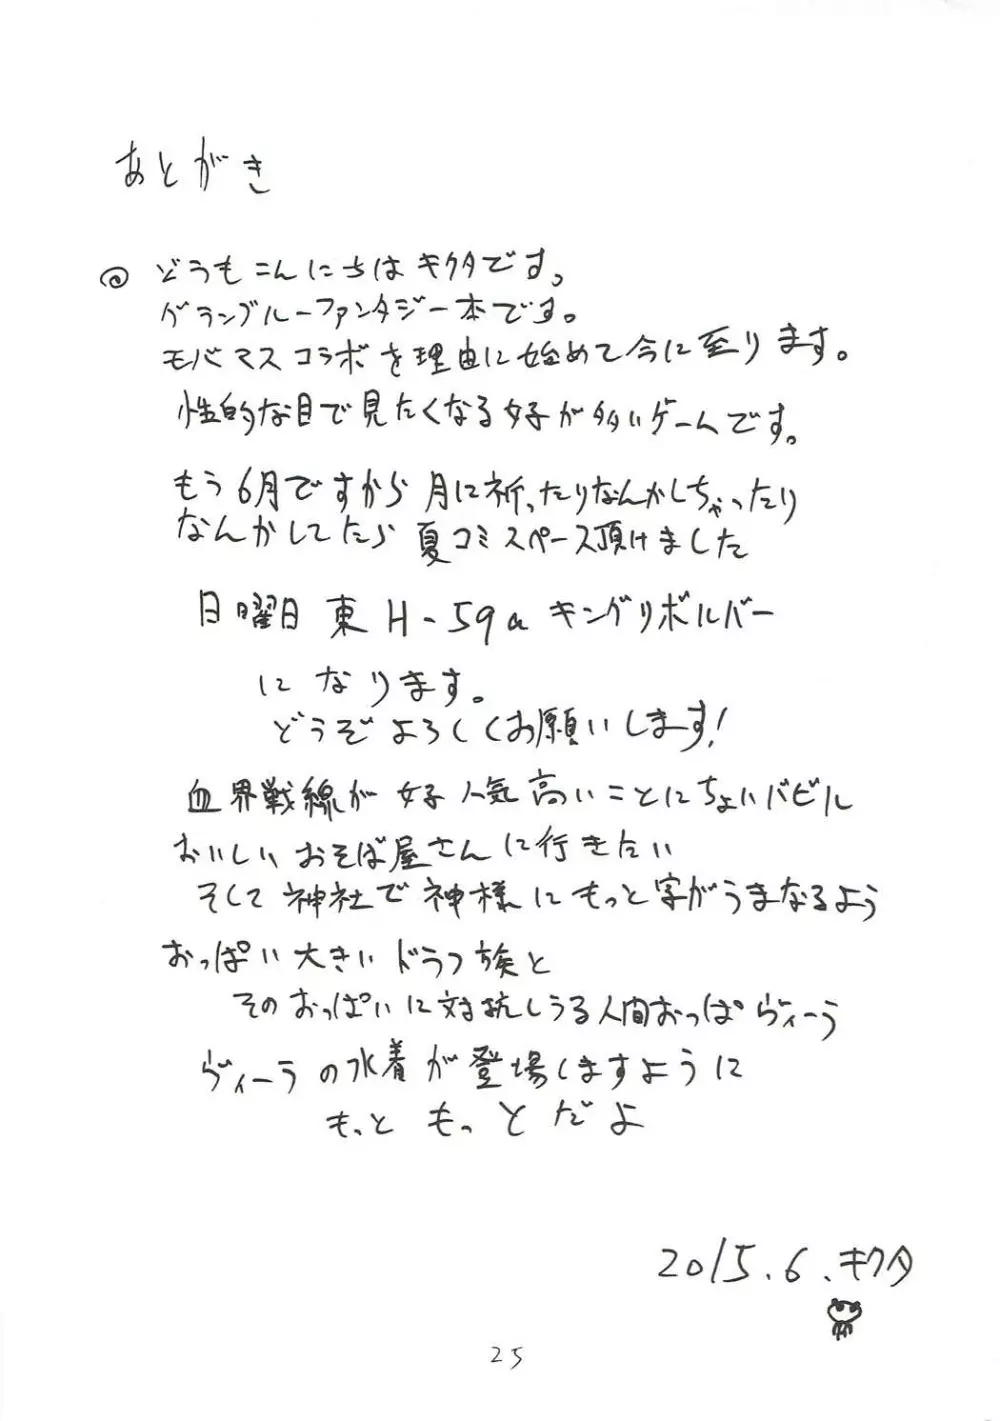 あとがき
◎ どうもこんにちはキクタです。
グランブルーファンタジー本です。
モバマスコラボを理由に始めて今に至ります。
性的な目で見たくなる好が多いゲームです。
もう6月ですから月に祈ったりなんかしちゃったり
なんかしてたら夏コミスペース頂けました
日曜日 東 H-59a キングリボルバー
になります。
どうぞよろしくお願いします!
血界戦線が好人気高いことにちょいバビル
おいしいおそば屋さんに行きたい
そして神社で神様にもっと字がうまなるよう
おっぱい大きいドラフ族と
そのおっぱいに対抗しうる人間おっぱヴィーラ
ヴィーラの水着が登場しますように
もっと もっとだよ
2015.6.キクタ
25